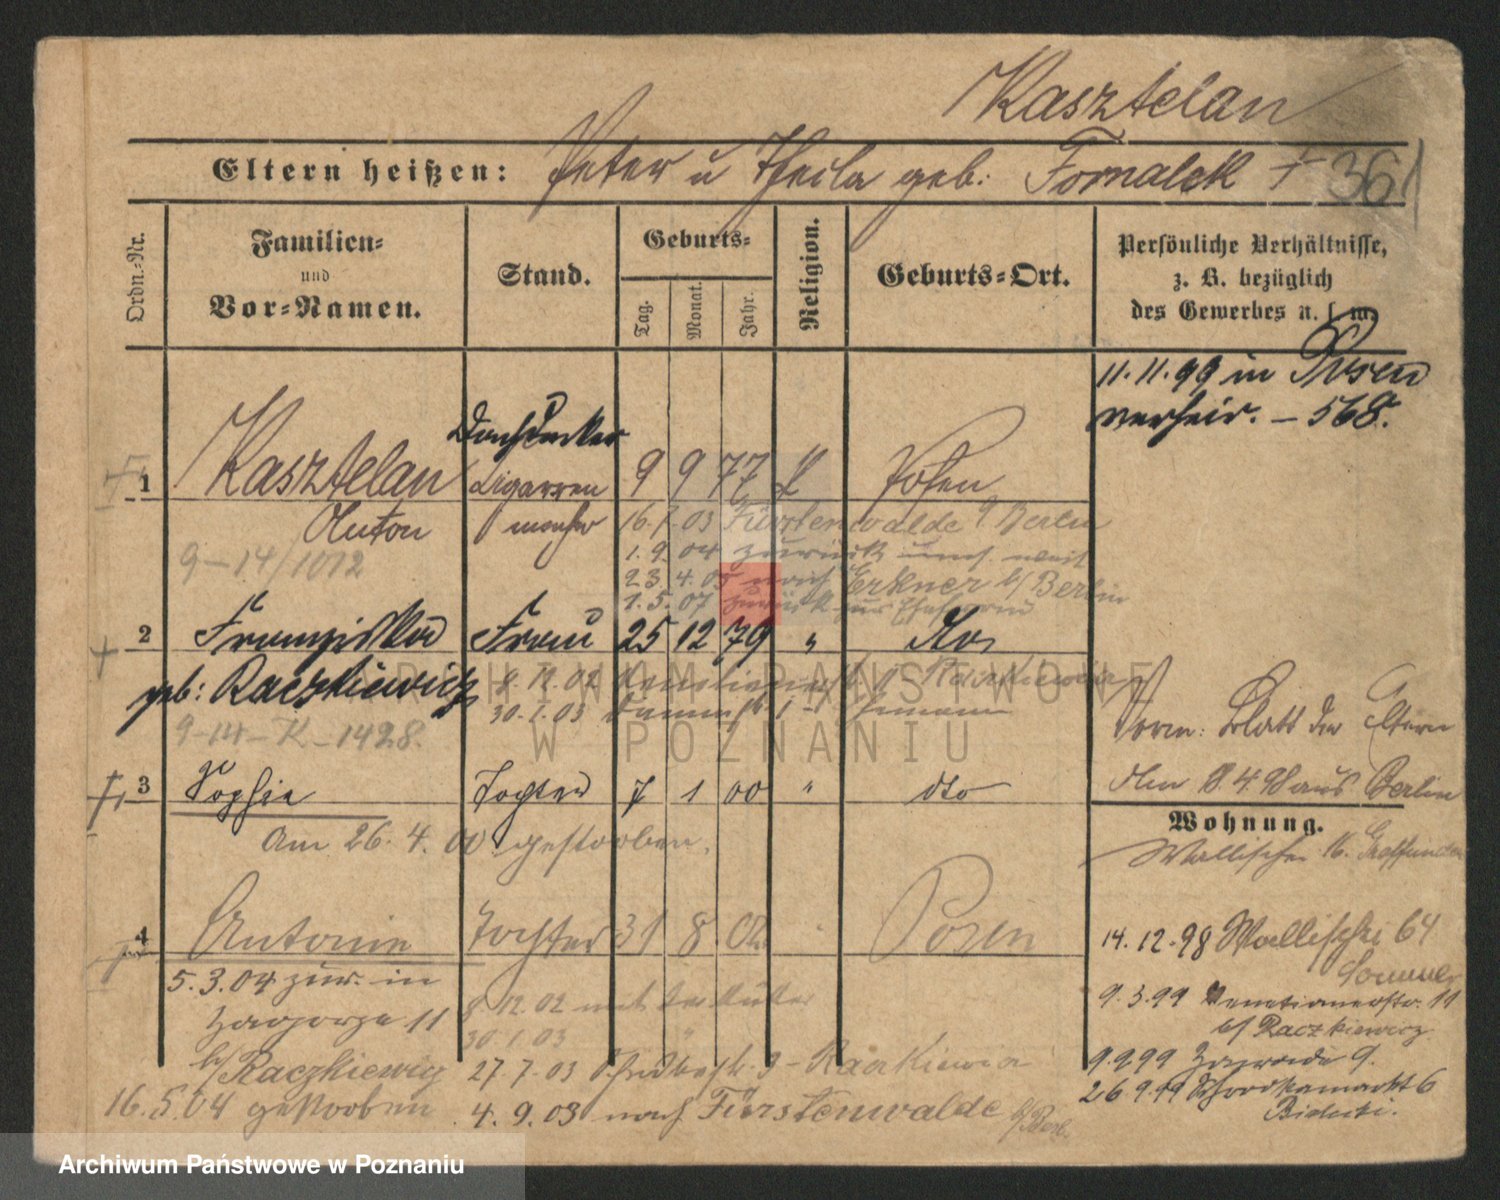 Kasztelan
Eltern heißen: Peter u Theila geb: Fornalek + 361
Ordn.-Nr.
Familien-
und
Vor-Namen.
Stand.
Geburts-
Tag. Monat. Jahr.
Religion.
Geburts-Ort.
Persönliche Verhältnisse,
z. B. bezüglich
des Gewerbes u. s. w.
11.11.99 in Posen
verheir. - 568.
Dachdecker
1 Kasztelan Cigarren 9 9 77 Posen
Anton macher 16.7.03 Fürstenwalde b/ Berlin
9-14/1072
1.9.04 zurück
23.4.05 nach Erkner b/ Berlin
1.5.07 zurück zur Ehefrau
2 Franziska Frau 25 12 79 " dto
geb: Raczkiewicz 8.12.02 Raczkiewicz
30.1.03
9-14-K-1428.
Vorm: Blatt der Eltern
8.4.98 aus Berlin
3 Sophie Tochter 7 1 00 " dto
am 26.4.00 gestorben.
Wohnung.
Wallischei 16.
4 Antonie Tochter 31 8 02 Posen
14.12.98 Wallischei 64
Sommer
5.3.04 zur. in
Zagorze 11
b/ Raczkiewicz
16.5.04 gestorben
8.12.02 mit der Mutter
30.1.03 "
27.7.03
4.9.03 nach Fürstenwalde b/ Berl.
9.3.99 Venetianerstr. 11
b/ Raczkiewicz
9.9.99 9.
26.9.99 Schrodkamarkt 6
ARCHIWUM PAŃSTWOWE
W POZNANIU
Archiwum Państwowe w Poznaniu